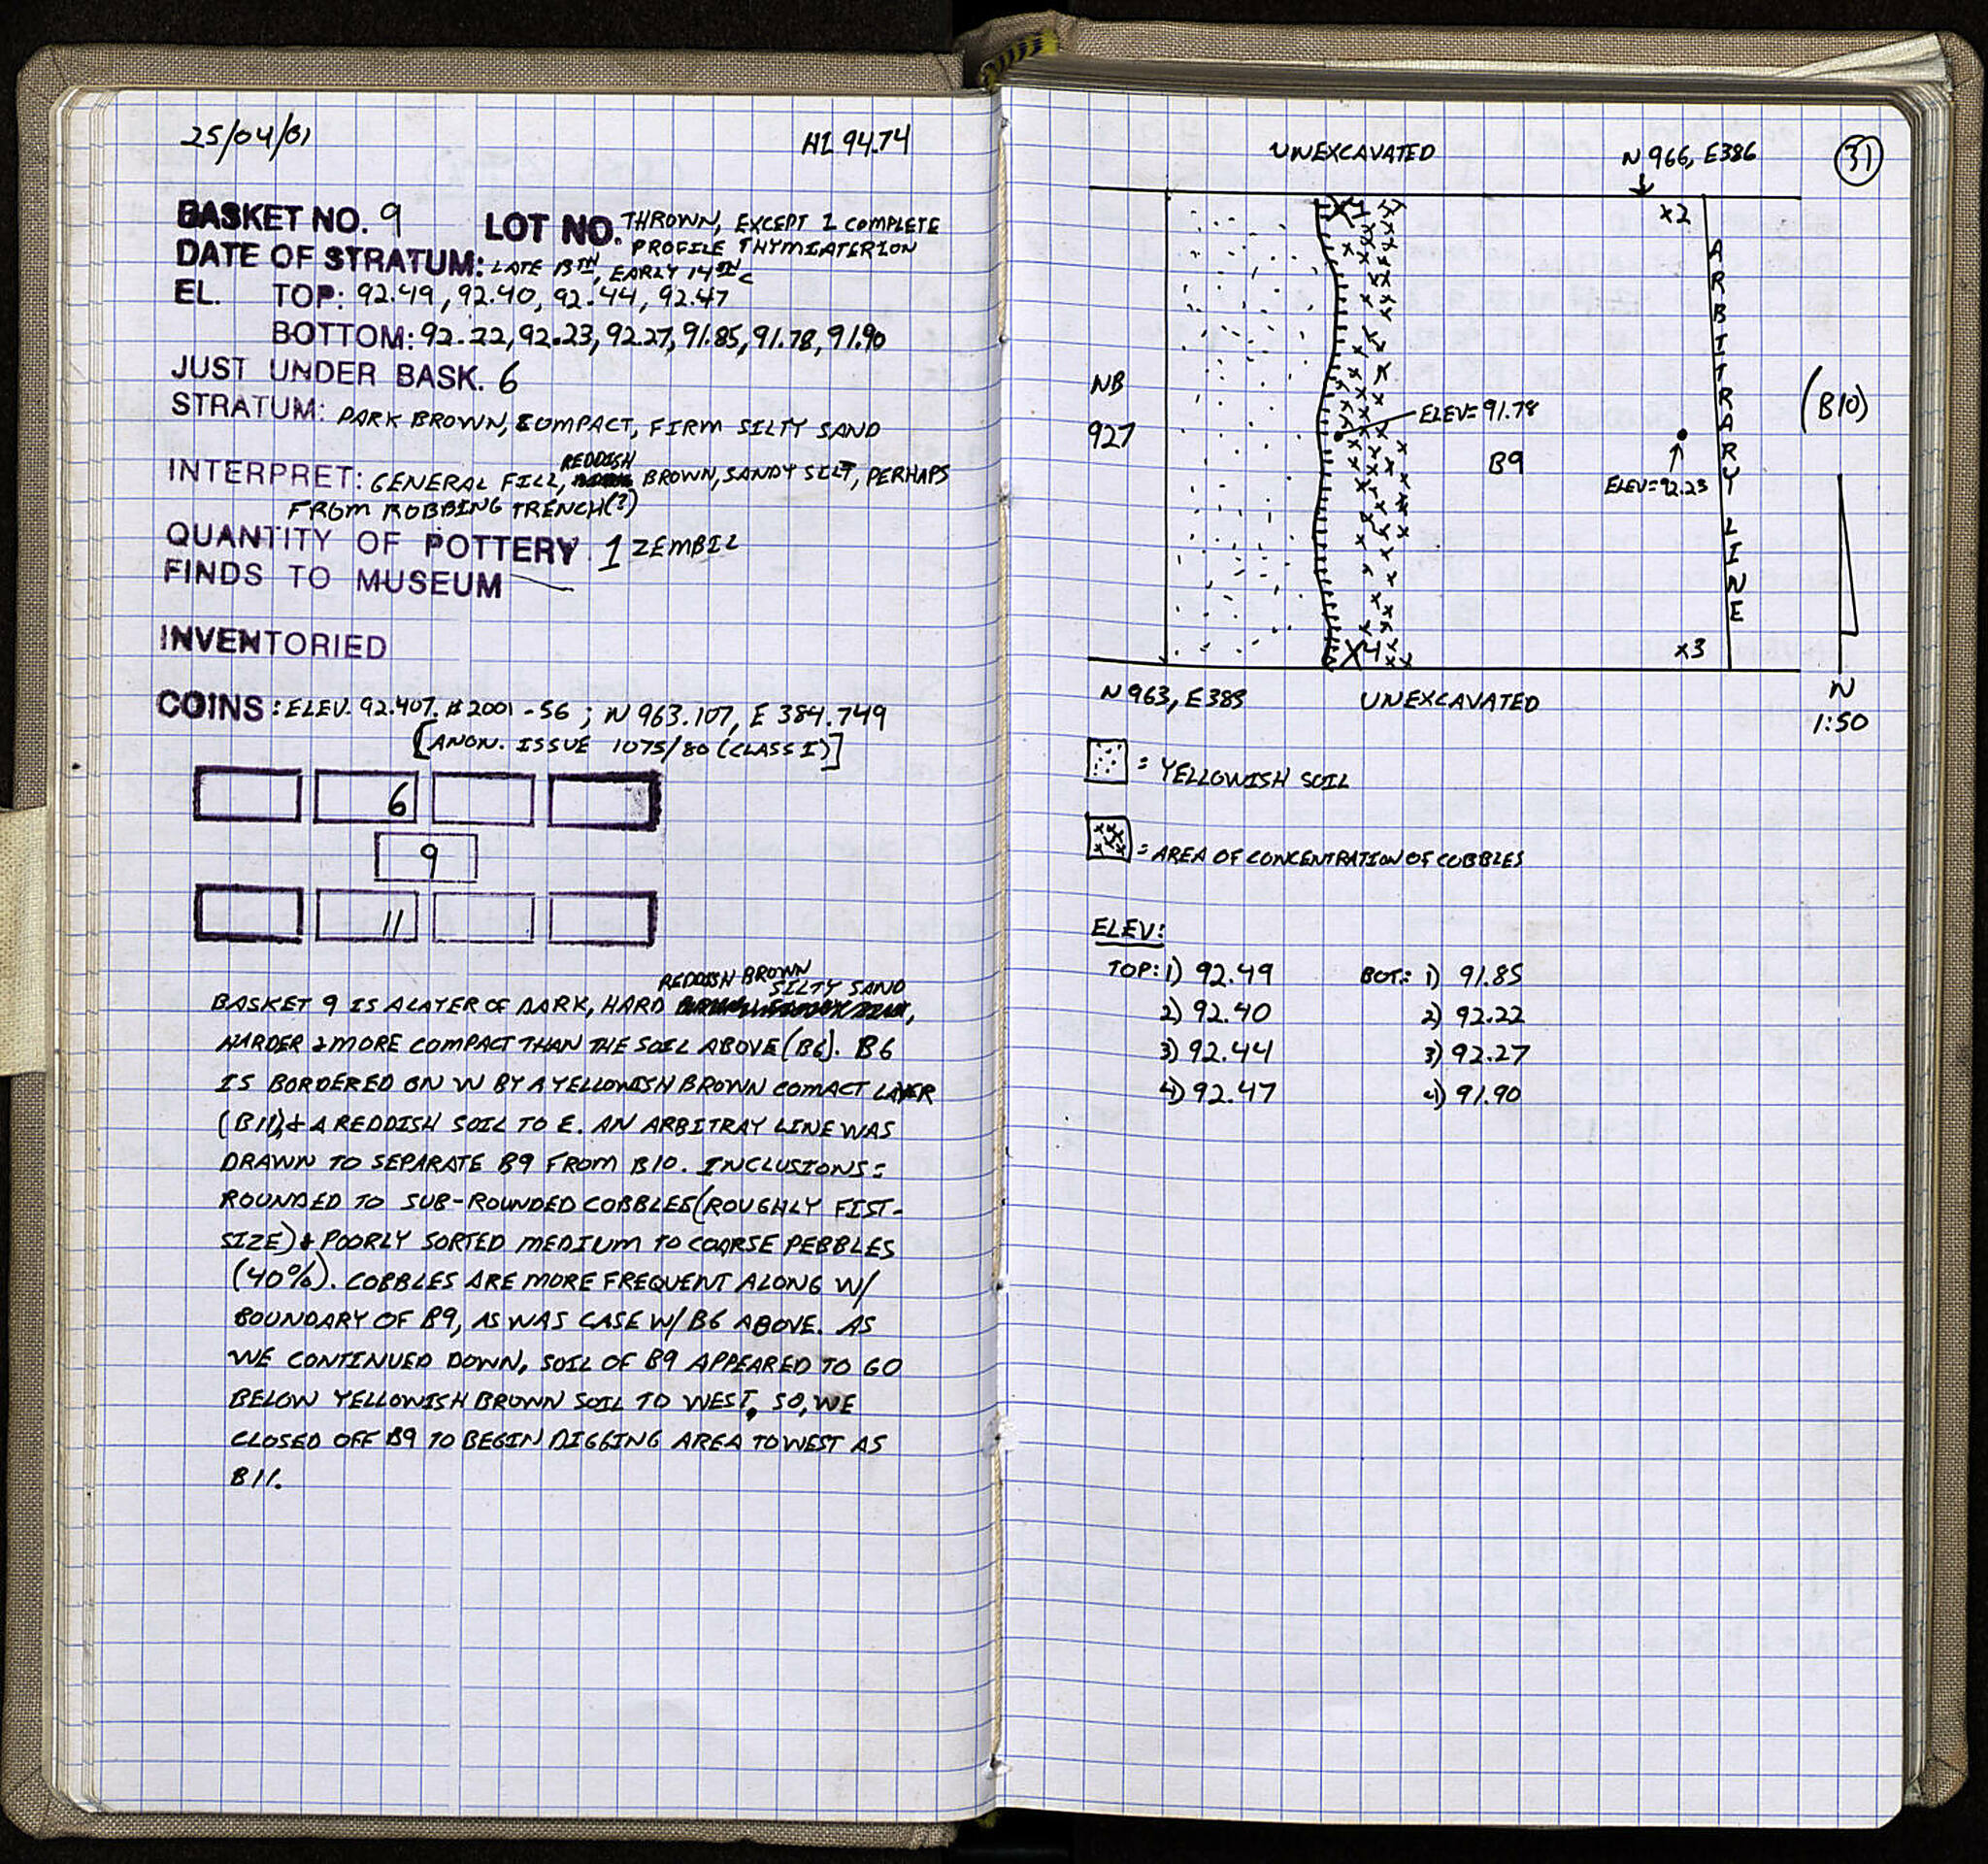 25/04/01
HI 94.74
BASKET NO. 9 LOT NO. THROWN, EXCEPT 1 COMPLETE
PROFILE THYMIATERION
DATE OF STRATUM: LATE 13TH, EARLY 14TH C
EL. TOP: 92.49, 92.40, 92.44, 92.47
BOTTOM: 92.22, 92.23, 92.27, 91.85, 91.78, 91.90
JUST UNDER BASK. 6
STRATUM: DARK BROWN, COMPACT, FIRM SILTY SAND
INTERPRET: GENERAL FILL, REDDISH BROWN, SANDY SILT, PERHAPS
FROM ROBBING TRENCH(?)
QUANTITY OF POTTERY. 1 ZEMBIL
FINDS TO MUSEUM —
INVENTORIED
COINS: ELEV. 92.407. #2001-56; N 963.107, E 384.749
[ANON. ISSUE 1075/80 (CLASS I)]
6
9
11
REDDISH BROWN
SILTY SAND
BASKET 9 IS A LAYER OF DARK, HARD ,
HARDER & MORE COMPACT THAN THE SOIL ABOVE (B6). B6
IS BORDERED ON W BY A YELLOWISH BROWN COMACT LAYER
(B11) & A REDDISH SOIL TO E. AN ARBITRAY LINE WAS
DRAWN TO SEPARATE B9 FROM B10. INCLUSIONS:
ROUNDED TO SUB-ROUNDED COBBLES (ROUGHLY FIST-
SIZE) & POORLY SORTED MEDIUM TO COARSE PEBBLES
(40%). COBBLES ARE MORE FREQUENT ALONG W/
BOUNDARY OF B9, AS WAS CASE W/ B6 ABOVE. AS
WE CONTINUED DOWN, SOIL OF B9 APPEARED TO GO
BELOW YELLOWISH BROWN SOIL TO WEST, SO, WE
CLOSED OFF B9 TO BEGIN DIGGING AREA TO WEST AS
B11.
31
UNEXCAVATED
N 966, E386
x1
x2
NB
927
ELEV=91.78
B9
ELEV=92.23
ARBITRARY LINE
(B10)
x4
x3
N 963, E383
UNEXCAVATED
N
1:50
= YELLOWISH SOIL
= AREA OF CONCENTRATION OF COBBLES
ELEV:
TOP: 1) 92.49 BOT: 1) 91.85
2) 92.40 2) 92.22
3) 92.44 3) 92.27
4) 92.47 4) 91.90